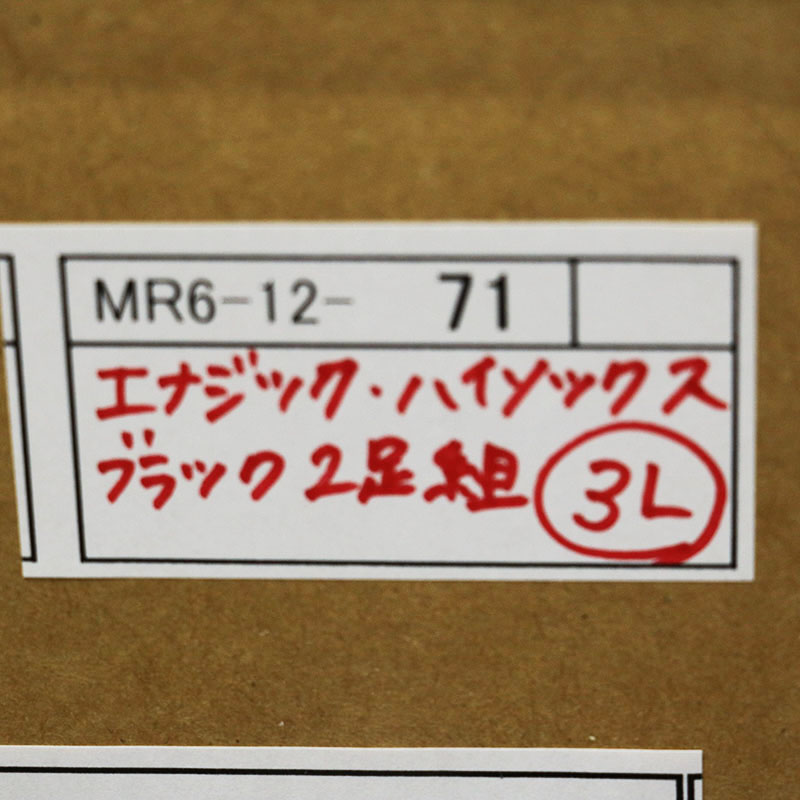 MR6-12- 71
エナジック・ハイソックス
ブラック2足組 3L